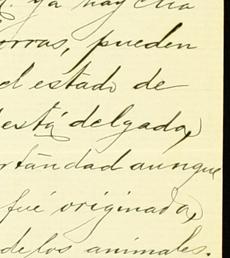 ya hay
orras, pueden
el estado de
está delgada,
ortandad aunque
fué originada,
de los animales.